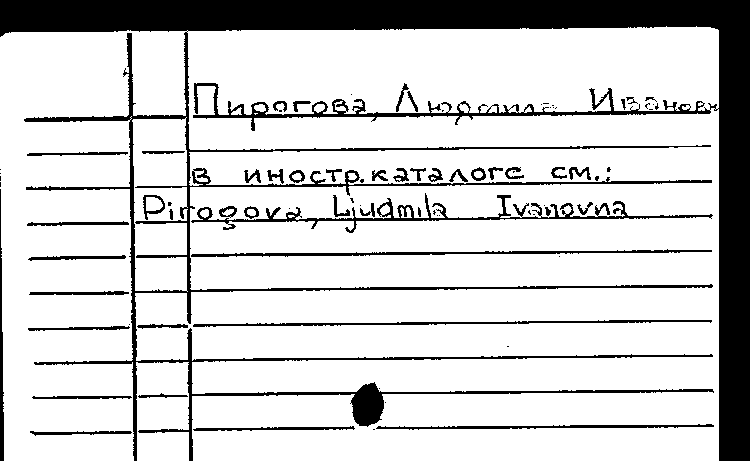 Пирогова, Людмила Ивановн
в иностр. каталоге см.:
Pirogova, Ljudmila Ivanovna